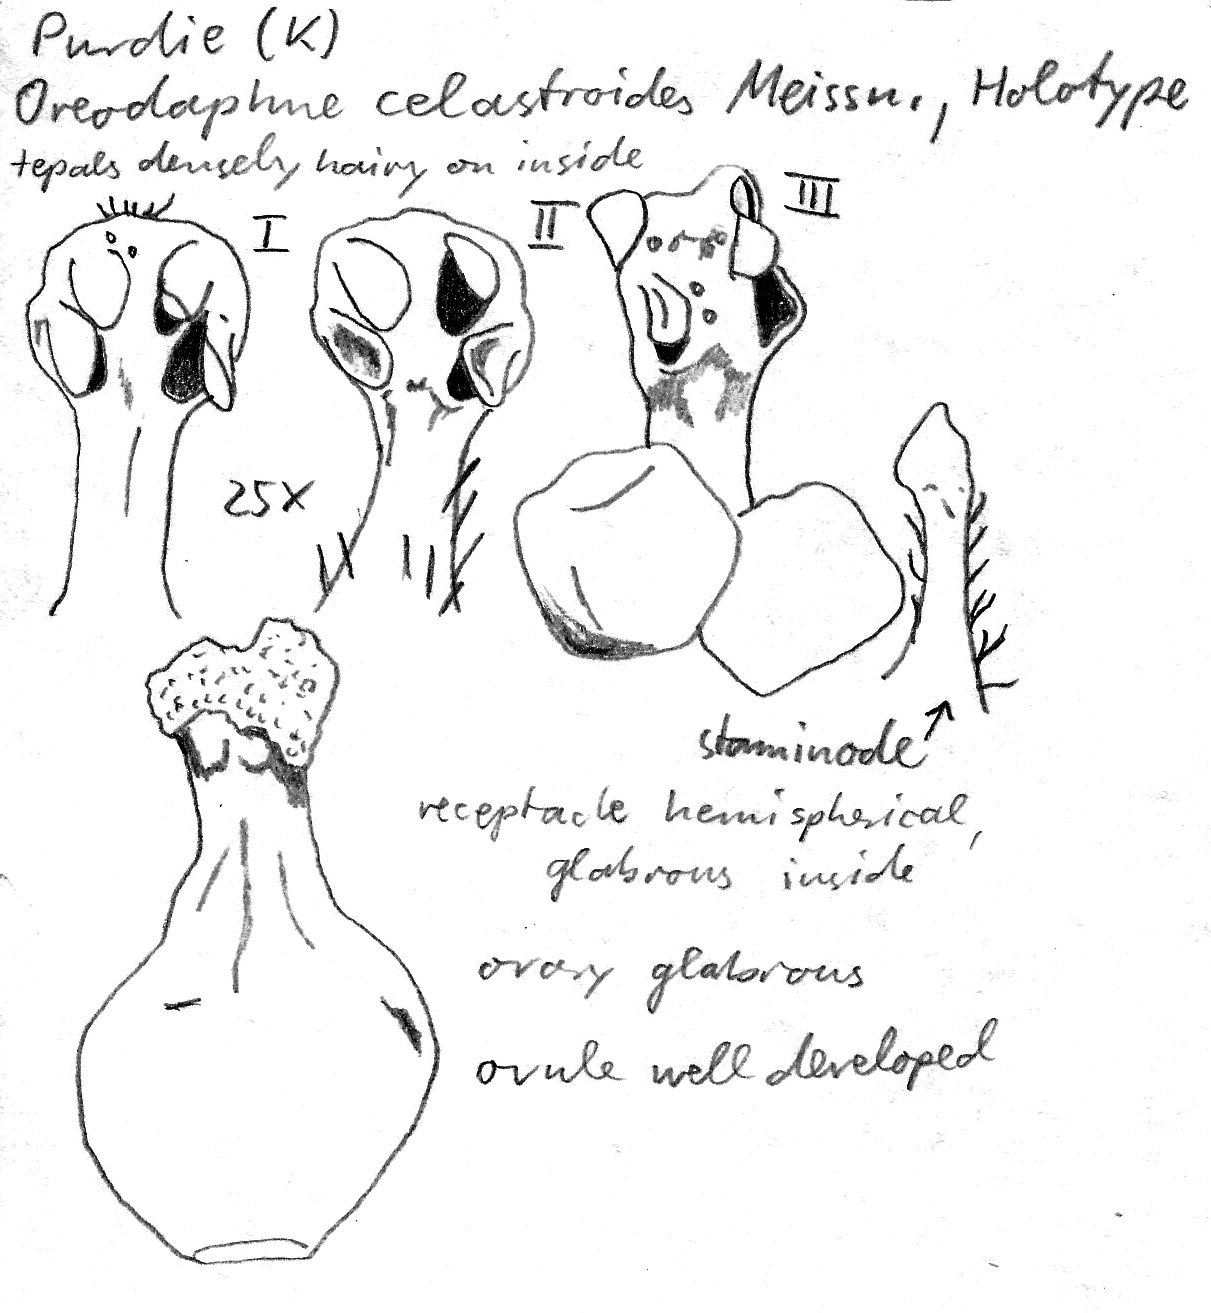 Purdie (K)
Oreodaphne celastroides Meissn., Holotype
tepals densely hairy on inside
I
II
III
25x
staminode
receptacle hemispherical,
glabrous inside
ovary glabrous
ovule well developed